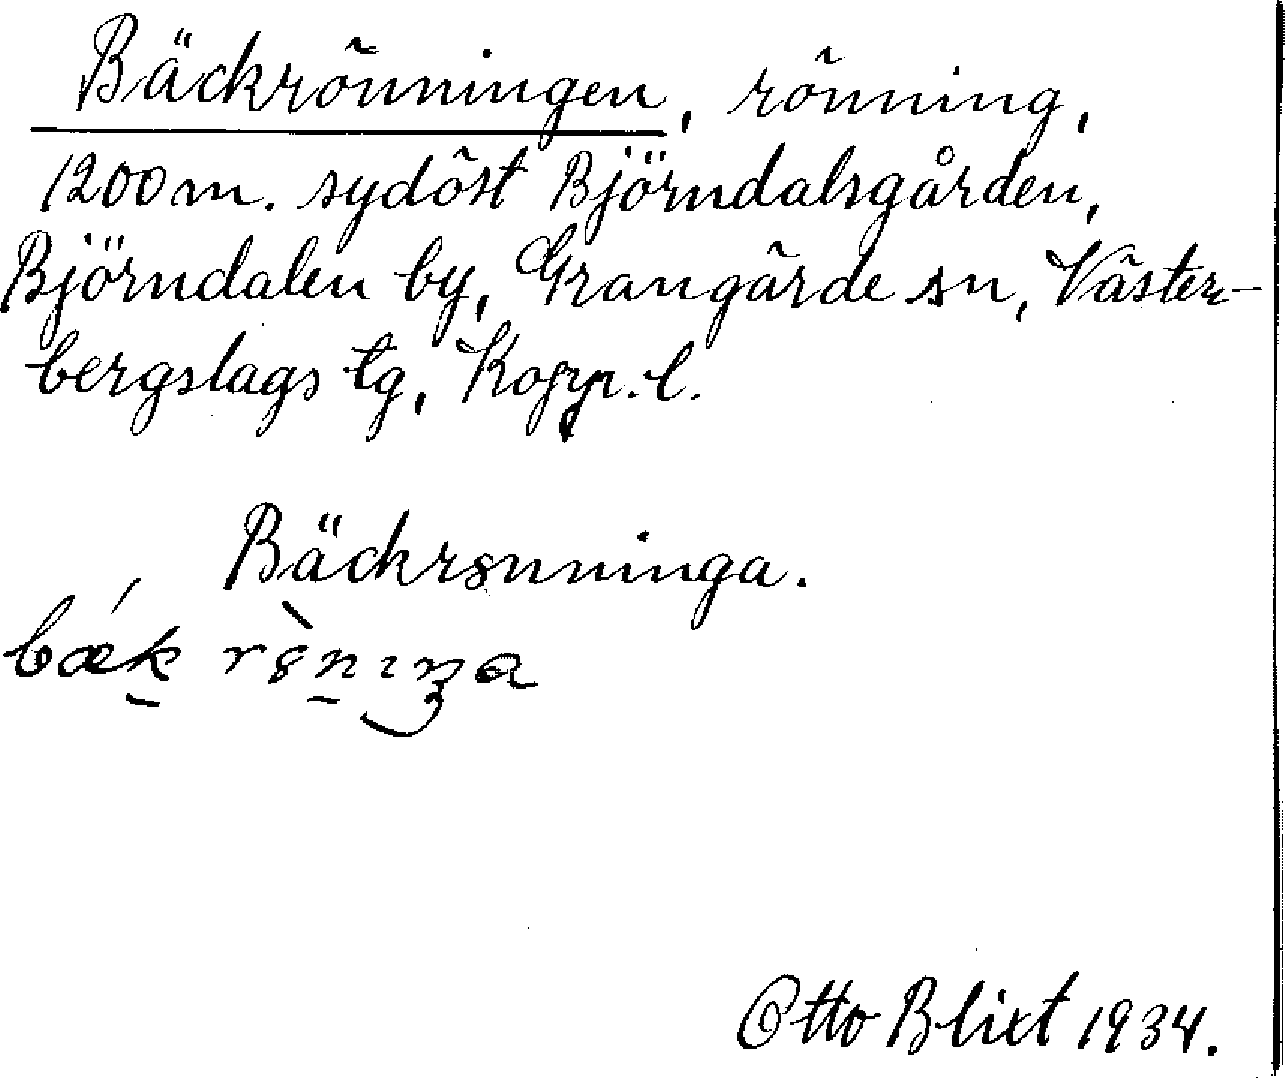 Bäckrönningen, rönning,
1200 m. sydöst Björndalsgården,
Björndalen by, Grangärde sn, Väster-
bergslags tg, Kopp. l.
Bäckrsnninga.
Otto Blixt 1934.